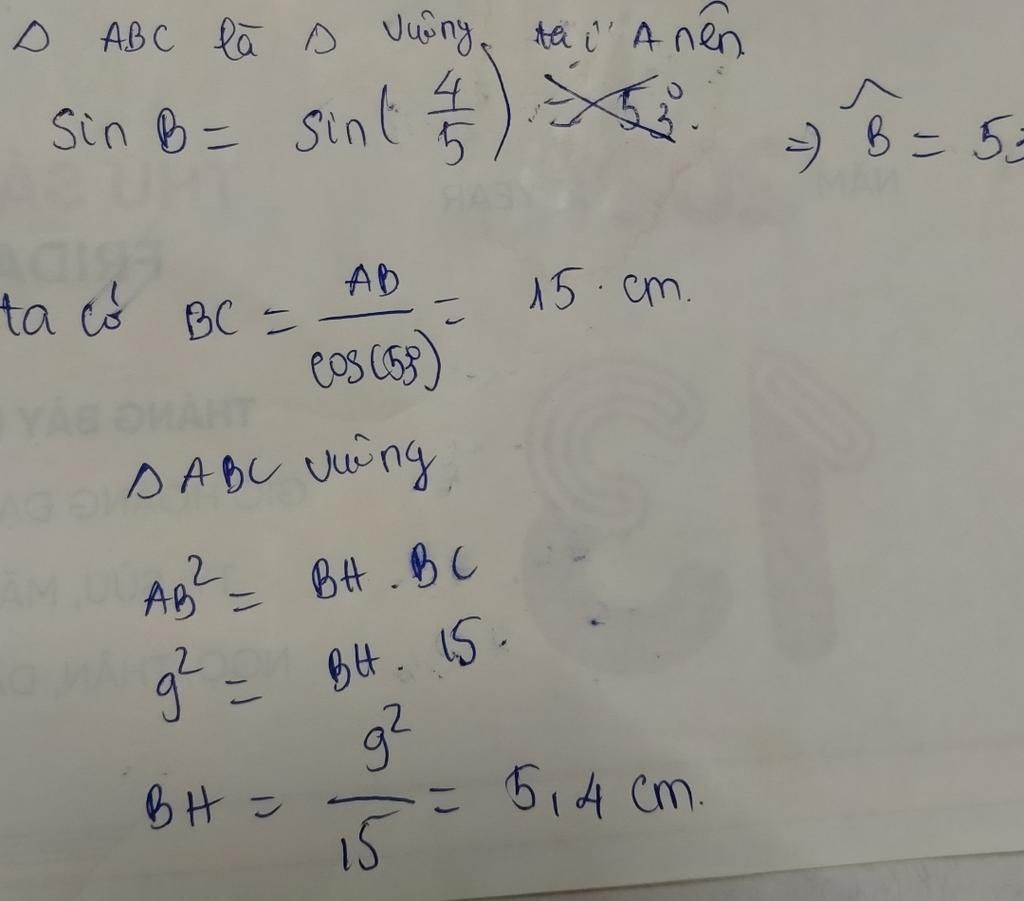 Δ ABC là Δ vuông tại A nên
Sin B = Sin(4/5) = 53°. => B̂ = 53
ta có BC = AB/cos(53°) = 15 cm.
Δ ABC vuông
AB² = BH . BC
9² = BH . 15.
BH = 9²/15 = 5,4 cm.